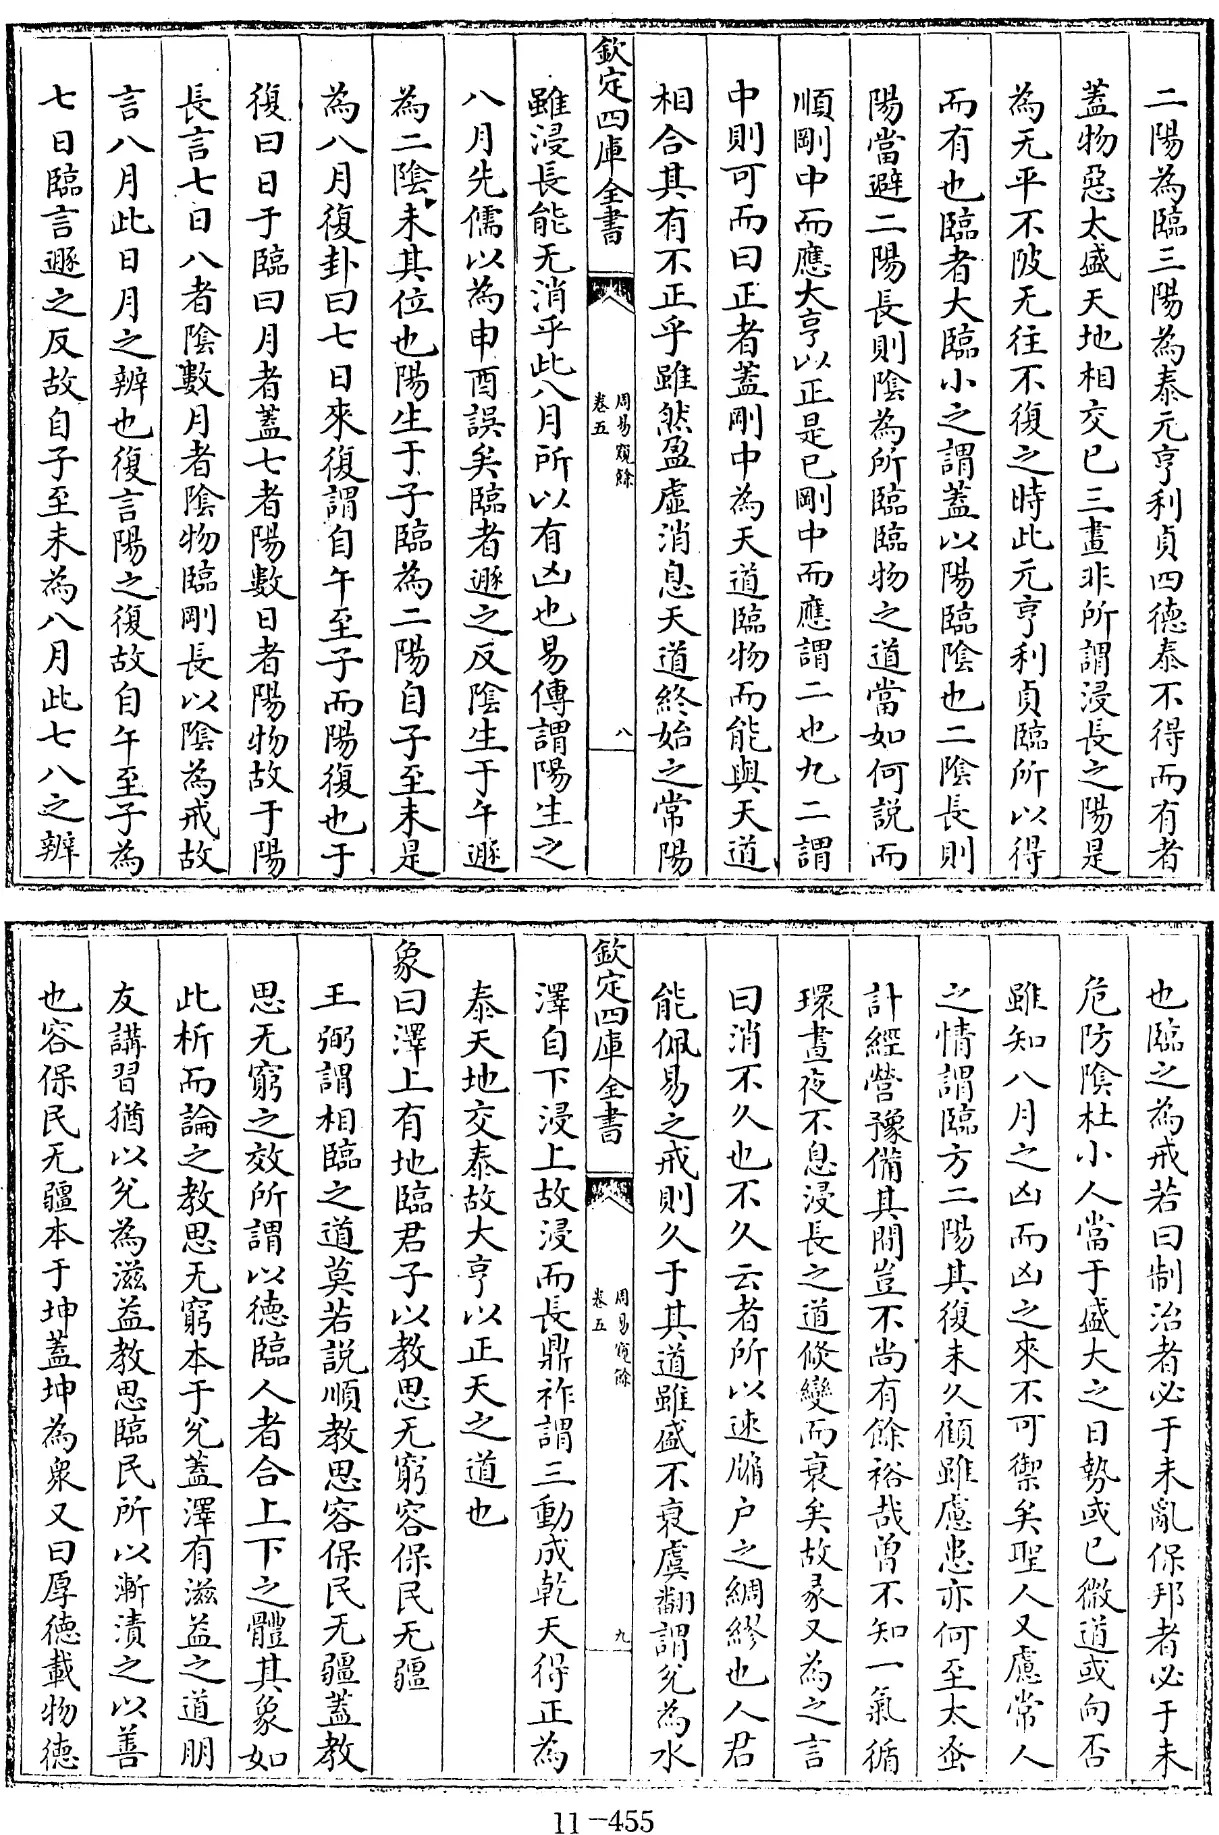 二陽為臨三陽為泰元亨利貞四德泰不得而有者
蓋物惡太盛天地相交已三畫非所謂浸長之陽是
為无平不陂无往不復之時此元亨利貞臨所以得
而有也臨者大臨小之謂蓋以陽臨陰也二陰長則
陽當避二陽長則陰為所臨臨物之道當如何説而
順剛中而應大亨以正是已剛中而應謂二也九二謂
中則可而曰正者蓋剛中為天道臨物而能與天道
相合其有不正乎雖然盈虛消息天道終始之常陽
欽定四庫全書
周易窺餘
卷五
八
雖浸長能无消乎此八月所以有凶也易傳謂陽生之
八月先儒以為申酉誤矣臨者遯之反陰生于午遯
為二陰未其位也陽生于子臨為二陽自子至未是
為八月復卦曰七日來復謂自午至子而陽復也于
復曰日于臨曰月者蓋七者陽數日者陽物故于陽
長言七日八者陰數月者陰物臨剛長以陰為戒故
言八月此日月之辨也復言陽之復故自午至子為
七日臨言遯之反故自子至未為八月此七八之辨
也臨之為戒若曰制治者必于未亂保邦者必于未
危防陰杜小人當于盛大之日勢或已微道或向否
雖知八月之凶而凶之來不可禦矣聖人又慮常人
之情謂臨方二陽其復未久顧雖慮患亦何至太蚤
計經營豫備其間豈不尚有餘裕哉曾不知一氣循
環晝夜不息浸長之道倐變而衰矣故彖又為之言
曰消不久也不久云者所以速牖户之綢繆也人君
能佩易之戒則久于其道雖盛不衰虞翻謂兊為水
欽定四庫全書
周易窺餘
卷五
九
澤自下浸上故浸而長鼎祚謂三動成乾天得正為
泰天地交泰故大亨以正天之道也
象曰澤上有地臨君子以教思无窮容保民无疆
王弼謂相臨之道莫若説順教思容保民无疆蓋教
思无窮之效所謂以德臨人者合上下之體其象如
此析而論之教思无窮本于兊蓋澤有滋益之道朋
友講習猶以兊為滋益教思臨民所以漸漬之以善
也容保民无疆本于坤蓋坤為衆又曰厚德載物德
11-455